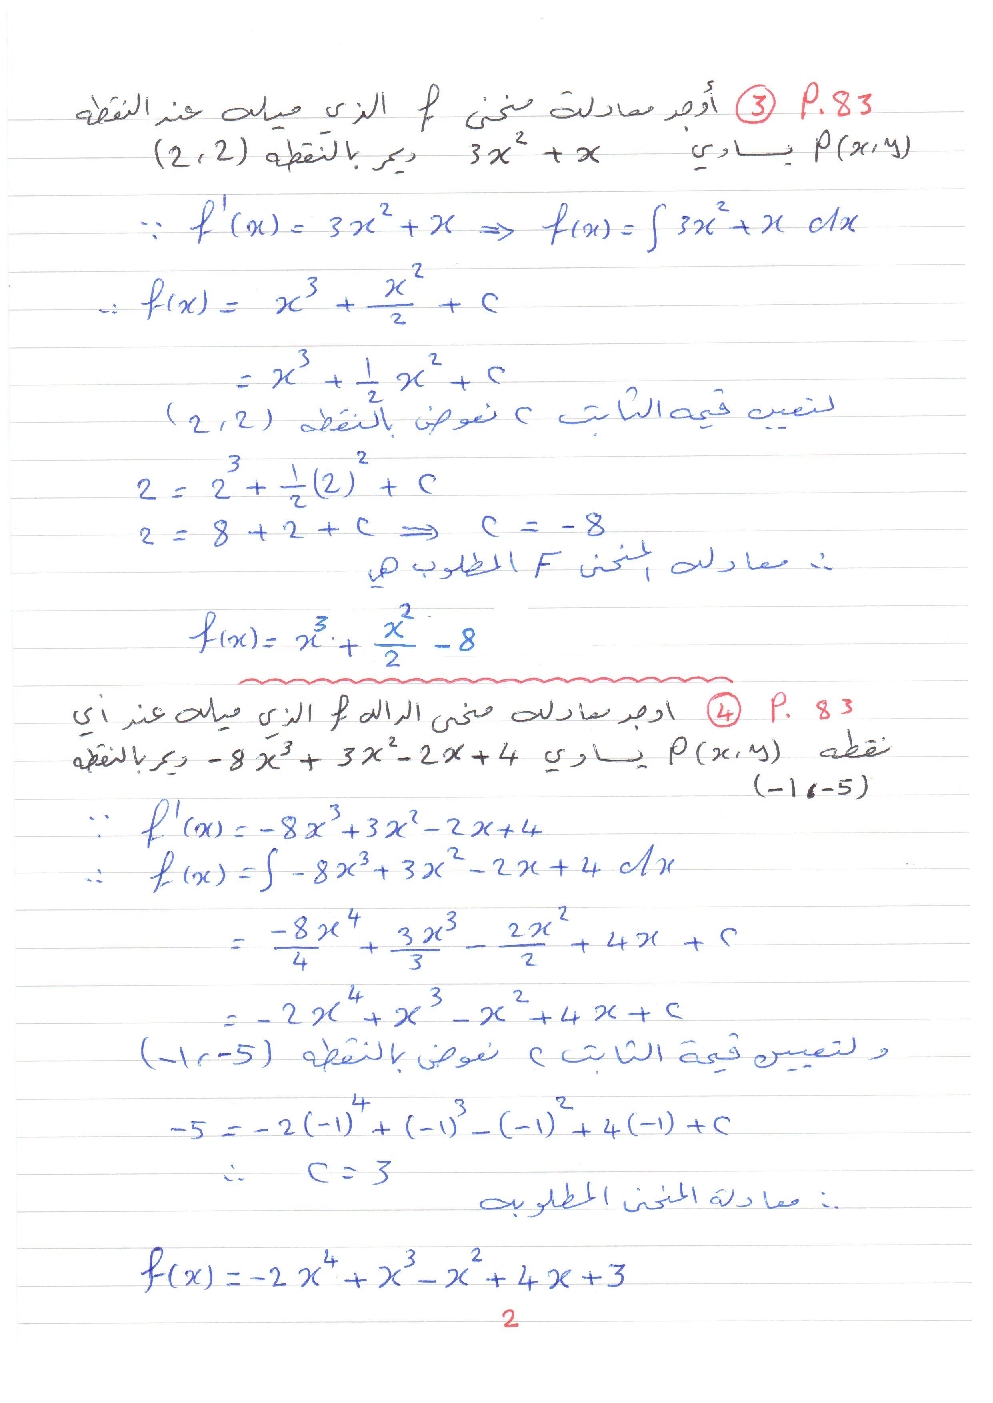 P.83 ③ أوجد معادلة منحنى f الذي ميله عند النقطه
P(x,y) يساوي 3x² + x ويمر بالنقطه (2,2)
∵ f'(x) = 3x² + x ⇒ f(x) = ∫ 3x² + x dx
∴ f(x) = x³ + x²/2 + c
= x³ + 1/2 x² + c
لتعيين قيمه الثابت c نعوض بالنقطه (2,2)
2 = 2³ + 1/2 (2)² + c
2 = 8 + 2 + c ⇒ c = -8
∴ معادله المنحنى F المطلوب هي
f(x) = x³ + x²/2 - 8
P. 83 ④ اوجد معادله منحنى الداله f الذي ميله عند أي
نقطه P(x,y) يساوي -8x³ + 3x² - 2x + 4 ويمر بالنقطه
(-1,-5)
∵ f'(x) = -8x³ + 3x² - 2x + 4
∴ f(x) = ∫ -8x³ + 3x² - 2x + 4 dx
= -8x⁴/4 + 3x³/3 - 2x²/2 + 4x + c
= -2x⁴ + x³ - x² + 4x + c
ولتعيين قيمة الثابت c نعوض بالنقطه (-1,-5)
-5 = -2(-1)⁴ + (-1)³ - (-1)² + 4(-1) + c
∴ c = 3
∴ معادلة المنحنى المطلوبه
f(x) = -2x⁴ + x³ - x² + 4x + 3
2